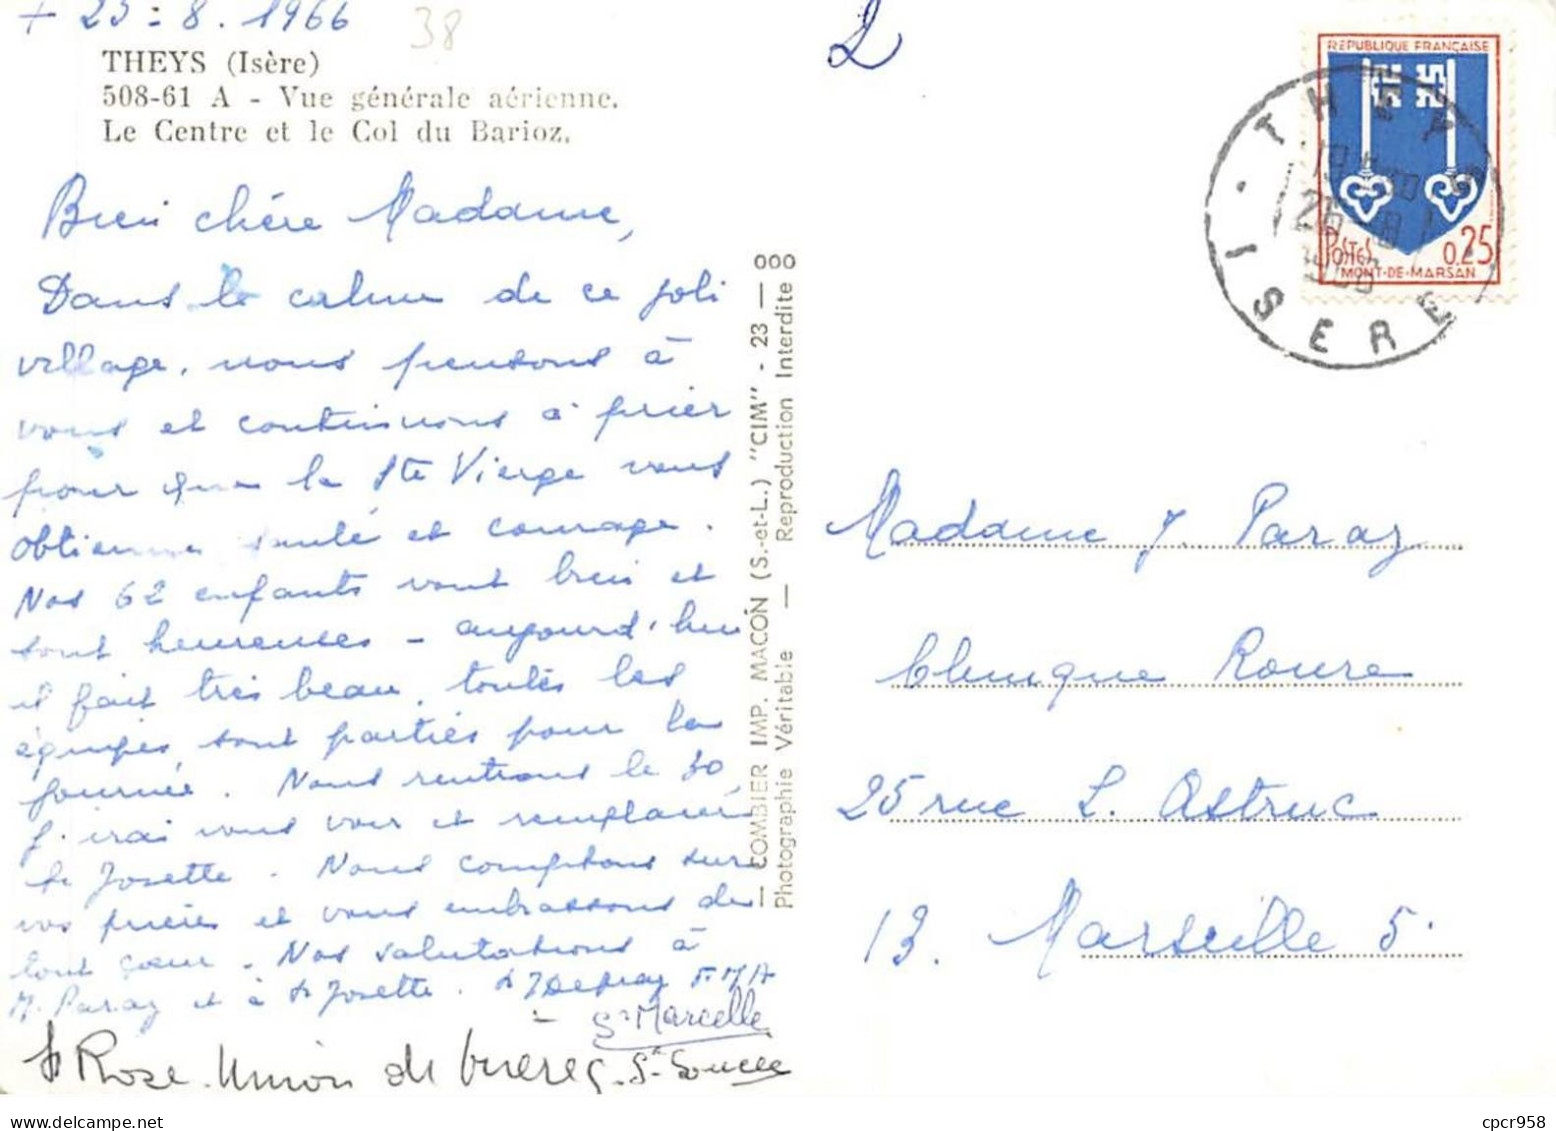 + 25 - 8. 1966
38
THEYS (Isère)
508-61 A - Vue générale aérienne.
Le Centre et le Col du Barioz.
Bien chère Madame,
Dans le calme de ce joli
village, nous pensons à
vous et continuons à prier
pour que la Ste Vierge vous
obtienne santé et courage.
Nos 62 enfants vont bien et
sont heureuses - aujourd'hui
il fait très beau, toutes les
équipes sont parties pour la
journée. Nous rentrons le 30,
j'irai vous voir et remplacer
Sr Josette. Nous comptons sur
vos prières et vous embrassons de
tout cœur. Nos salutations à
M. Paraz et à Sr Josette. Sr J F.M.A
Sr Marcelle
Sr Rose. Union de prières. Sr
COMBIER IMP. MACON (S.-et-L.) "CIM" - 23 - 000
Photographie Véritable - Reproduction Interdite
2
REPUBLIQUE FRANÇAISE
POSTES 0,25
MONT-DE-MARSAN
THEYS
26-8
ISERE
Madame J. Paraz
Clinique Roure
25 rue L. Astruc
13. Marseille 5.
cpcr958